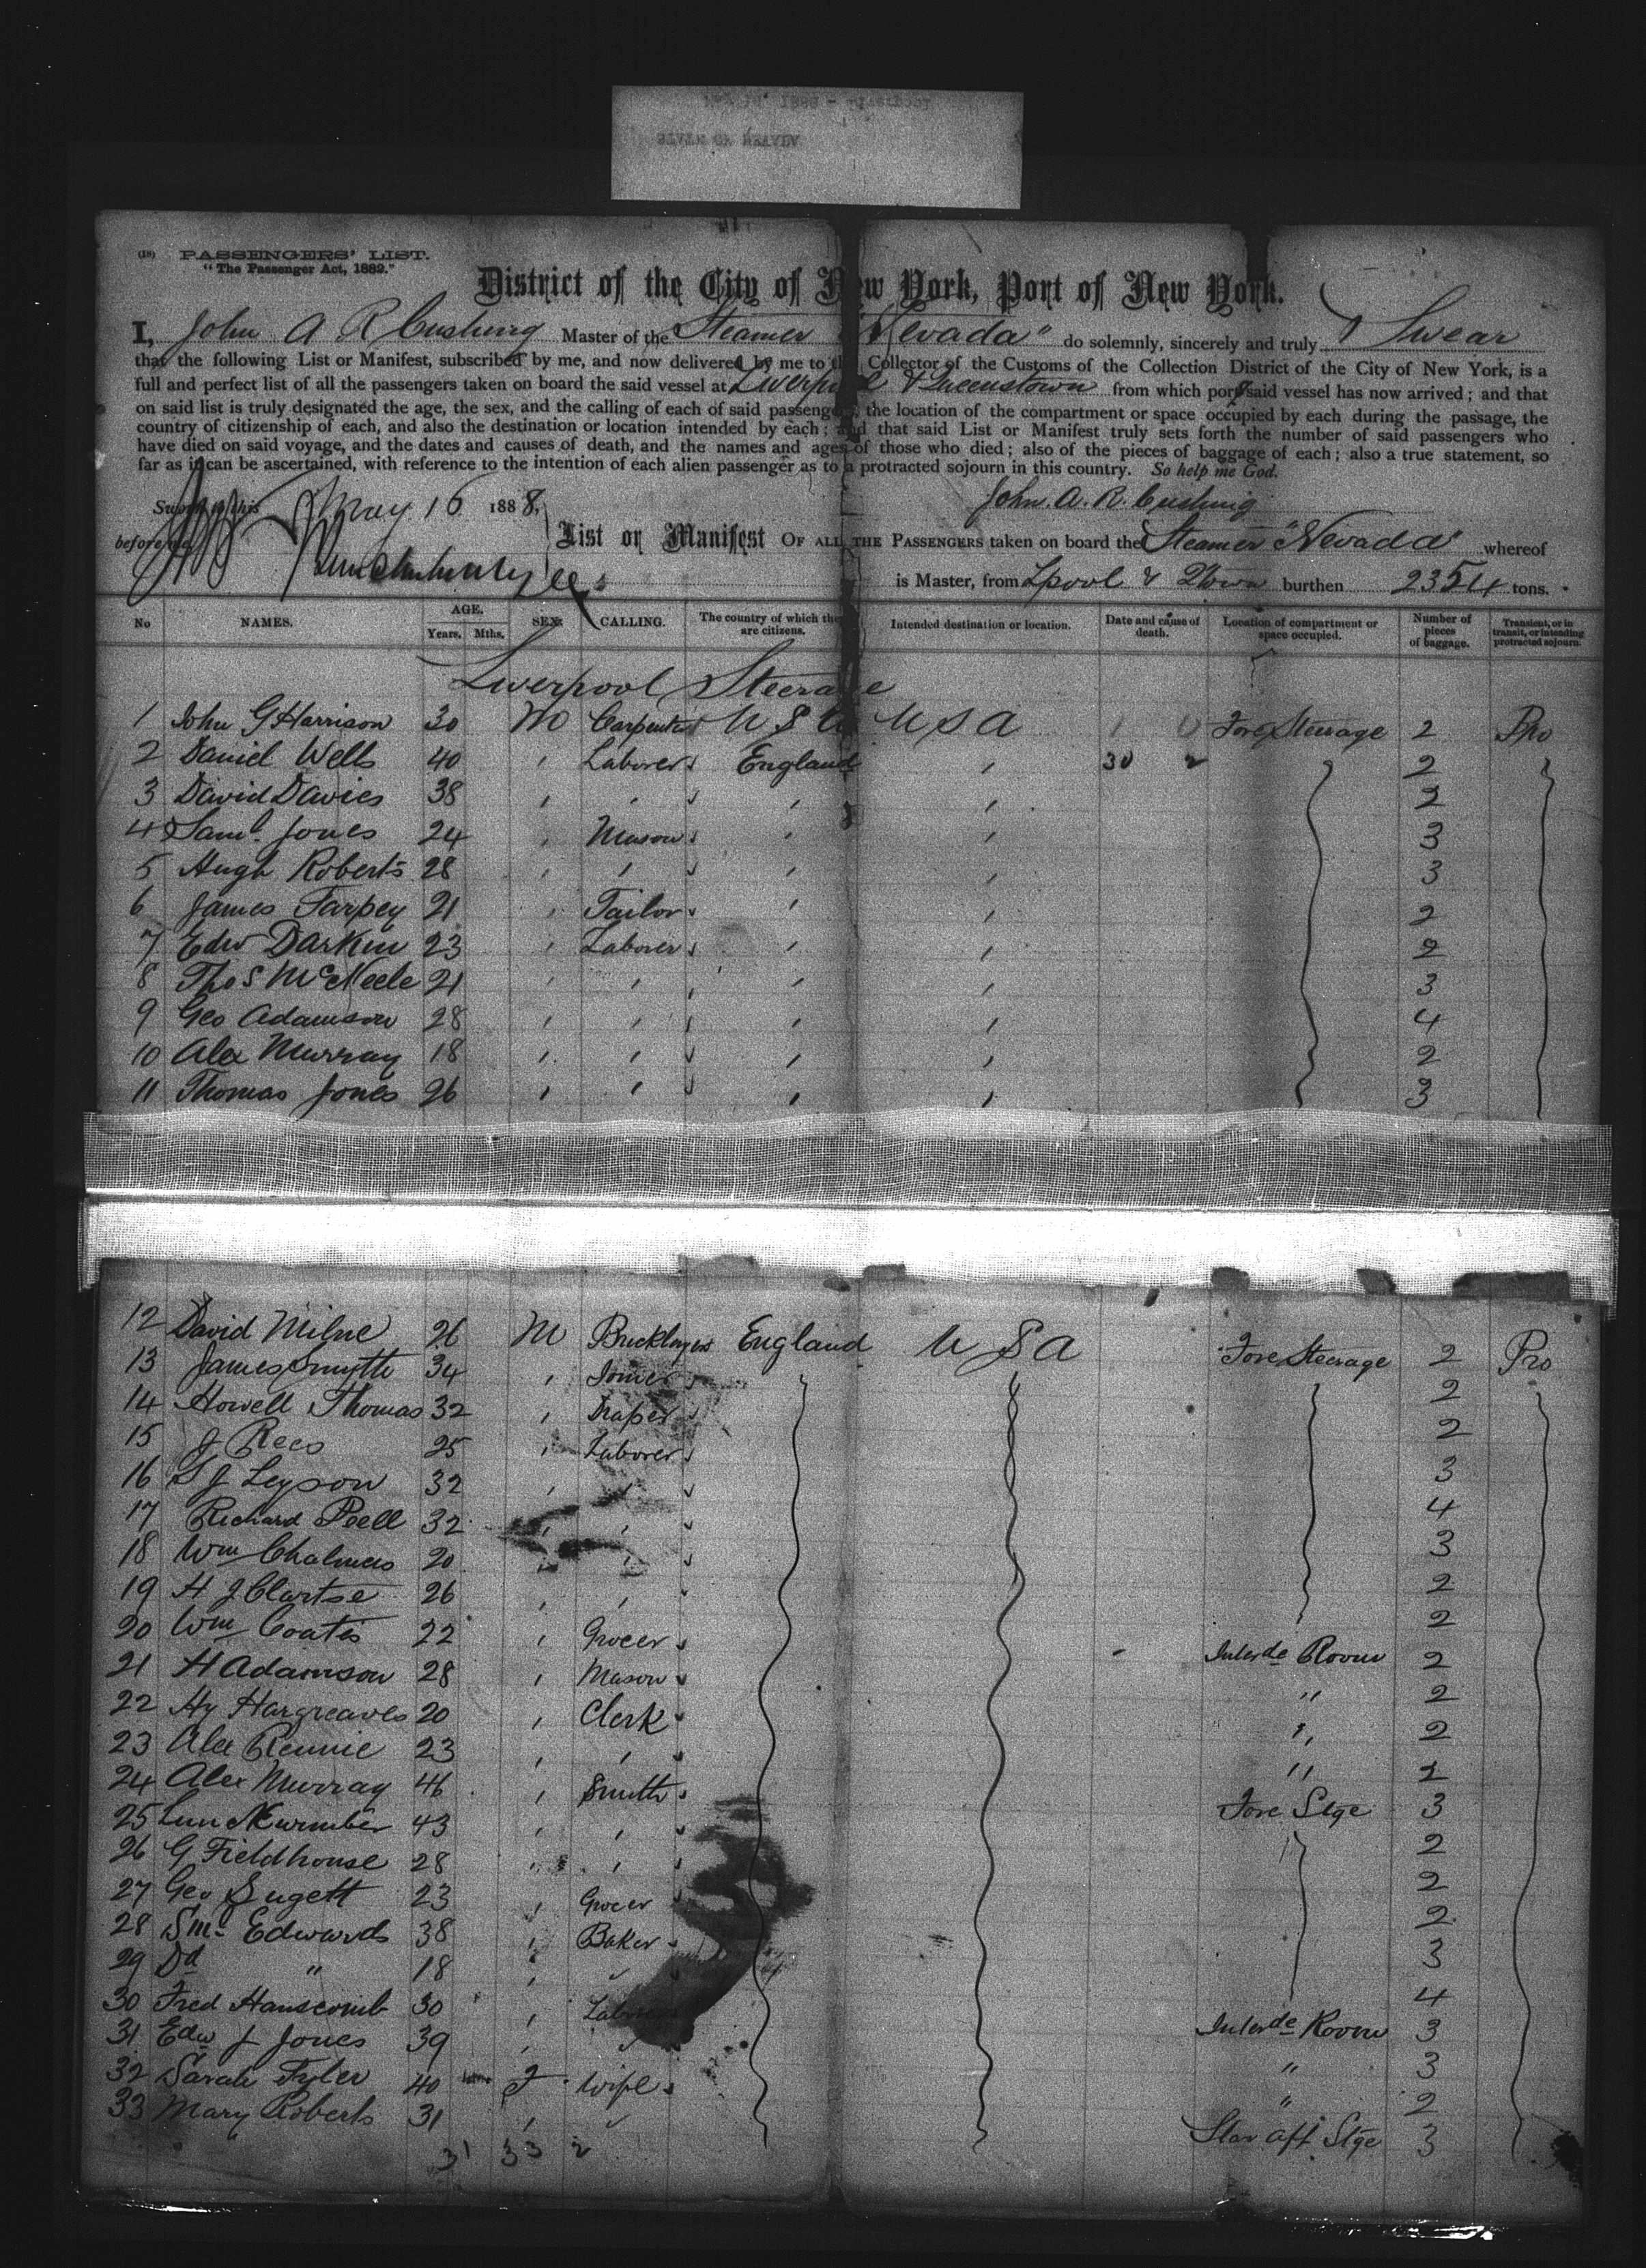 (18) PASSENGERS' LIST.
"The Passenger Act, 1882."
District of the City of New York, Port of New York.
I, John A R Cushing Master of the Steamer "Nevada" do solemnly, sincerely and truly Swear
that the following List or Manifest, subscribed by me, and now delivered by me to the Collector of the Customs of the Collection District of the City of New York, is a
full and perfect list of all the passengers taken on board the said vessel at Liverpool & Queenstown from which port said vessel has now arrived; and that
on said list is truly designated the age, the sex, and the calling of each of said passengers, the location of the compartment or space occupied by each during the passage, the
country of citizenship of each, and also the destination or location intended by each; and that said List or Manifest truly sets forth the number of said passengers who
have died on said voyage, and the dates and causes of death, and the names and ages of those who died; also of the pieces of baggage of each; also a true statement, so
far as it can be ascertained, with reference to the intention of each alien passenger as to a protracted sojourn in this country. So help me God.
Sworn to this May 16 1888, John. A. R. Cushing
before me
List or Manifest OF ALL THE PASSENGERS taken on board the Steamer "Nevada" whereof
is Master, from Lpool & Qtown burthen 2354 tons.
No NAMES. AGE. Years. Mths. SEX. CALLING. The country of which they are citizens. Intended destination or location. Date and cause of death. Location of compartment or space occupied. Number of pieces of baggage. Transient, or in transit, or intending protracted sojourn.
Liverpool Steerage
1 John G Harrison 30 M Carpenter U S A U S A Fore Steerage 2 Pro
2 Daniel Wells 40 " Laborer England " 30 2 2
3 David Davies 38 " " " " 2
4 Saml. Jones 24 " Mason " " 3
5 Hugh Roberts 28 " " " " 3
6 James Tarpey 21 " Tailor " " 2
7 Edw Darkin 23 " Laborer " " 2
8 Thos McNeele 21 " " " " 3
9 Geo Adamson 28 " " " " 4
10 Alex Murray 18 " " " " 2
11 Thomas Jones 26 " " " " 3
12 David Milne 26 M Bricklayer England U S A Fore Steerage 2 Pro
13 James Smyth 34 " Joiner 2
14 Howell Thomas 32 " Draper 2
15 J Rees 25 " Laborer 3
16 Leyson 32 " " 4
17 Richard Peell 32 " " 3
18 Wm Chalmers 20 " " 2
19 H J 26 " " 2
20 Wm Coates 22 " Grocer Interde Room 2
21 H Adamson 28 " Mason " 2
22 Hy Hargreaves 20 " Clerk " 2
23 Alex Rennie 23 " " " 2
24 Alex Murray 46 " Smith Fore Stge 3
25 43 " " 2
26 G Fieldhouse 28 " " 2
27 Geo Sugett 23 " Grocer 2
28 Sml Edwards 38 " Baker 3
29 Dd " 18 " " 4
30 Fred Hanscomb 30 " Laborer Interde Room 3
31 Edw J Jones 39 " " " 3
32 Sarah Tyler 40 F Wife " 2
33 Mary Roberts 31 " " Star aft Stge 3
31 33 2